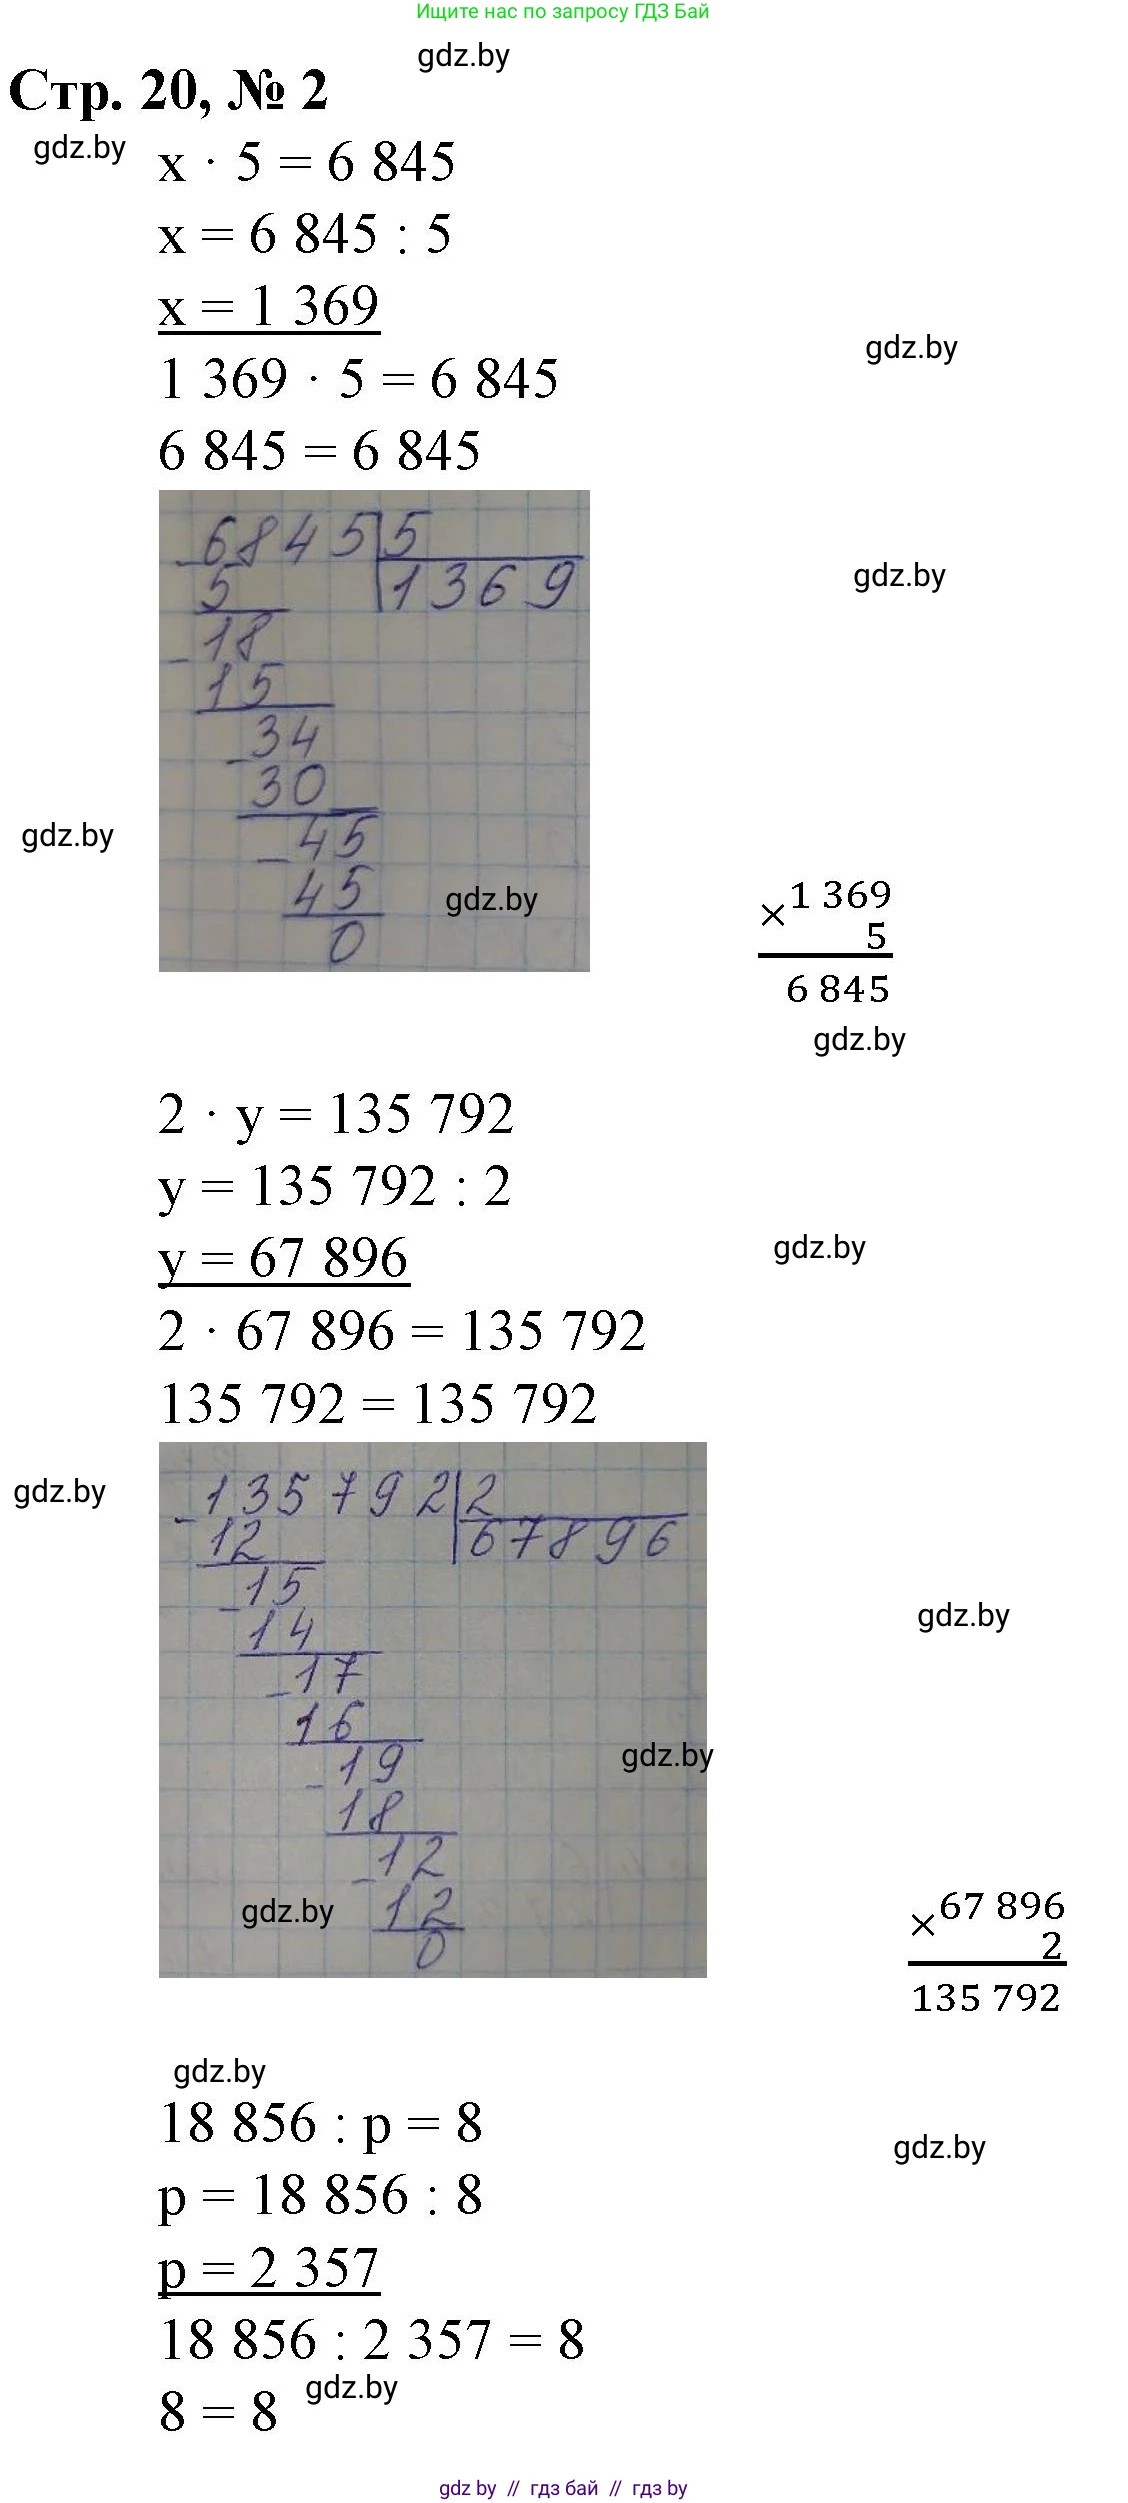 Ищите нас по запросу ГДЗ Бай
gdz.by
Стр. 20, № 2
gdz.by
x · 5 = 6 845
x = 6 845 : 5
x = 1 369
gdz.by
1 369 · 5 = 6 845
6 845 = 6 845
6845 5
gdz.by
5 1369
- 18
15
- 34
30
gdz.by
- 45
45
gdz.by
0
× 1 369
5
6 845
gdz.by
2 · y = 135 792
y = 135 792 : 2
y = 67 896
gdz.by
2 · 67 896 = 135 792
135 792 = 135 792
gdz.by
- 135792 2
12 67896
- 15
gdz.by
14
- 17
16
gdz.by
- 19
18
- 12
gdz.by
12
0
× 67 896
2
135 792
gdz.by
18 856 : p = 8
gdz.by
p = 18 856 : 8
p = 2 357
18 856 : 2 357 = 8
gdz.by
8 = 8
gdz by // гдз бай // gdz by